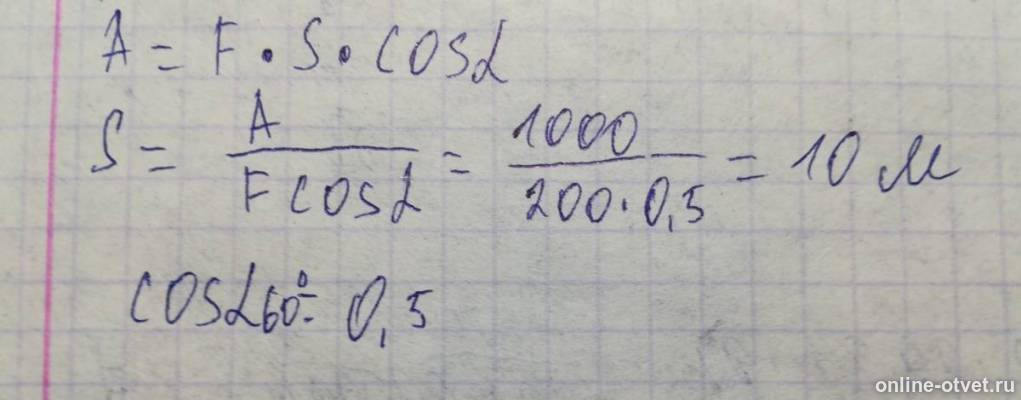 A = F · S · cosα
S = A / F cosα = 1000 / 200·0,5 = 10 м
cosα60° = 0,5
online-otvet.ru